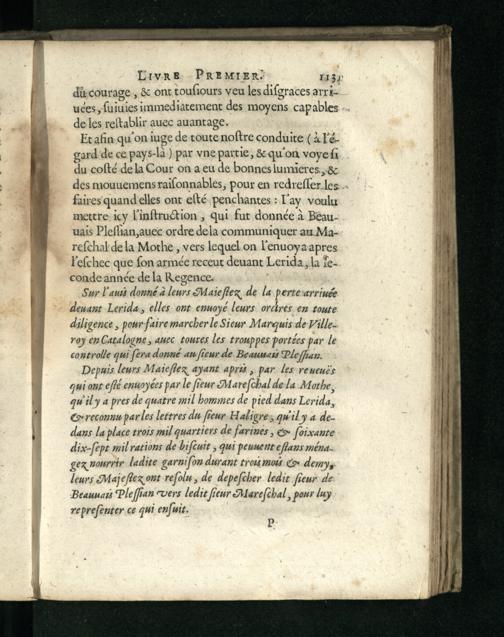 LIVRE PREMIER. 113
du courage, & ont tousiours veu les disgraces arri-
uées, suiuies immediatement des moyens capables
de les restablir auec auantage.
Et afin qu'on iuge de toute nostre conduite (à l'é-
gard de ce pays-là) par vne partie, & qu'on voye si
du costé de la Cour on a eu de bonnes lumieres, &
des mouuemens raisonnables, pour en redresser les
faires quand elles ont esté penchantes : I'ay voulu
mettre icy l'instruction, qui fut donnée à Beau-
uais Plessian, auec ordre de la communiquer au Ma-
reschal de la Mothe, vers lequel on l'enuoya apres
l'eschec que son armée receut deuant Lerida, la se-
conde année de la Regence.
Sur l'auis donné à leurs Maiestez de la perte arriuée
deuant Lerida, elles ont enuoyé leurs ordres en toute
diligence, pour faire marcher le Sieur Marquis de Ville-
roy en Catalogne, auec toutes les trouppes portées par le
controlle qui sera donné au sieur de Beauuais Plessian.
Depuis leurs Maiestez ayant apris, par les reueuës
qui ont esté enuoyées par le sieur Mareschal de la Mothe,
qu'il y a pres de quatre mil hommes de pied dans Lerida,
& reconnu par les lettres du sieur Haligre, qu'il y a de-
dans la place trois mil quartiers de farines, & soixante
dix-sept mil rations de biscuit, qui peuuent estans ména-
gez nourrir ladite garnison durant trois mois & demy,
leurs Majestez ont resolu, de depescher ledit sieur de
Beauuais Plessian vers ledit sieur Mareschal, pour luy
representer ce qui ensuit.
P